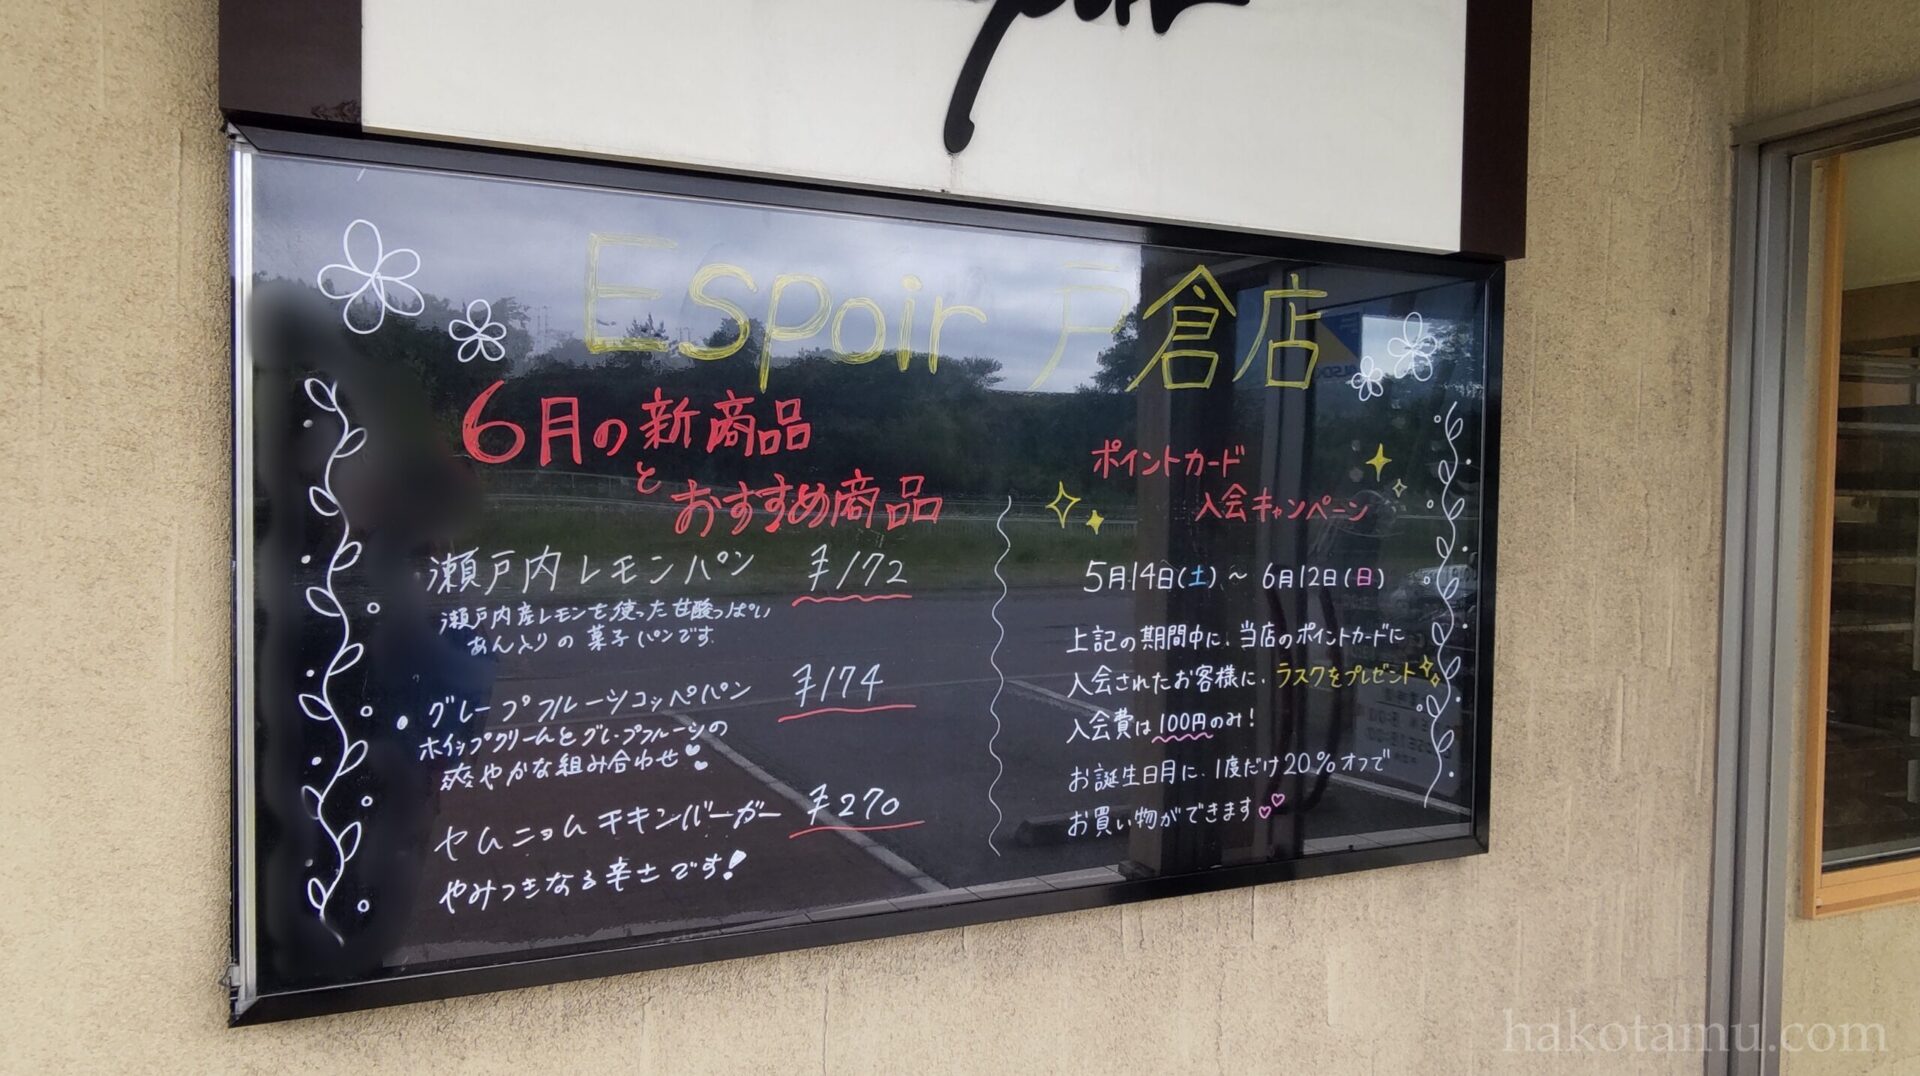 Espoir 戸倉店
6月の新商品
と
おすすめ商品
瀬戸内レモンパン ¥172
瀬戸内産レモンを使った甘酸っぱい
あん入りの菓子パンです。
・グレープフルーツコッペパン ¥174
ホイップクリームとグレープフルーツの
爽やかな組み合わせ
ヤムニョムチキンバーガー ¥270
やみつきなる辛さです!
ポイントカード
入会キャンペーン
5月14日(土)~6月12日(日)
上記の期間中に、当店のポイントカードに
入会されたお客様に、ラスクをプレゼント
入会費は100円のみ!
お誕生日月に、1度だけ20%オフで
お買い物ができます
hakotamu.com